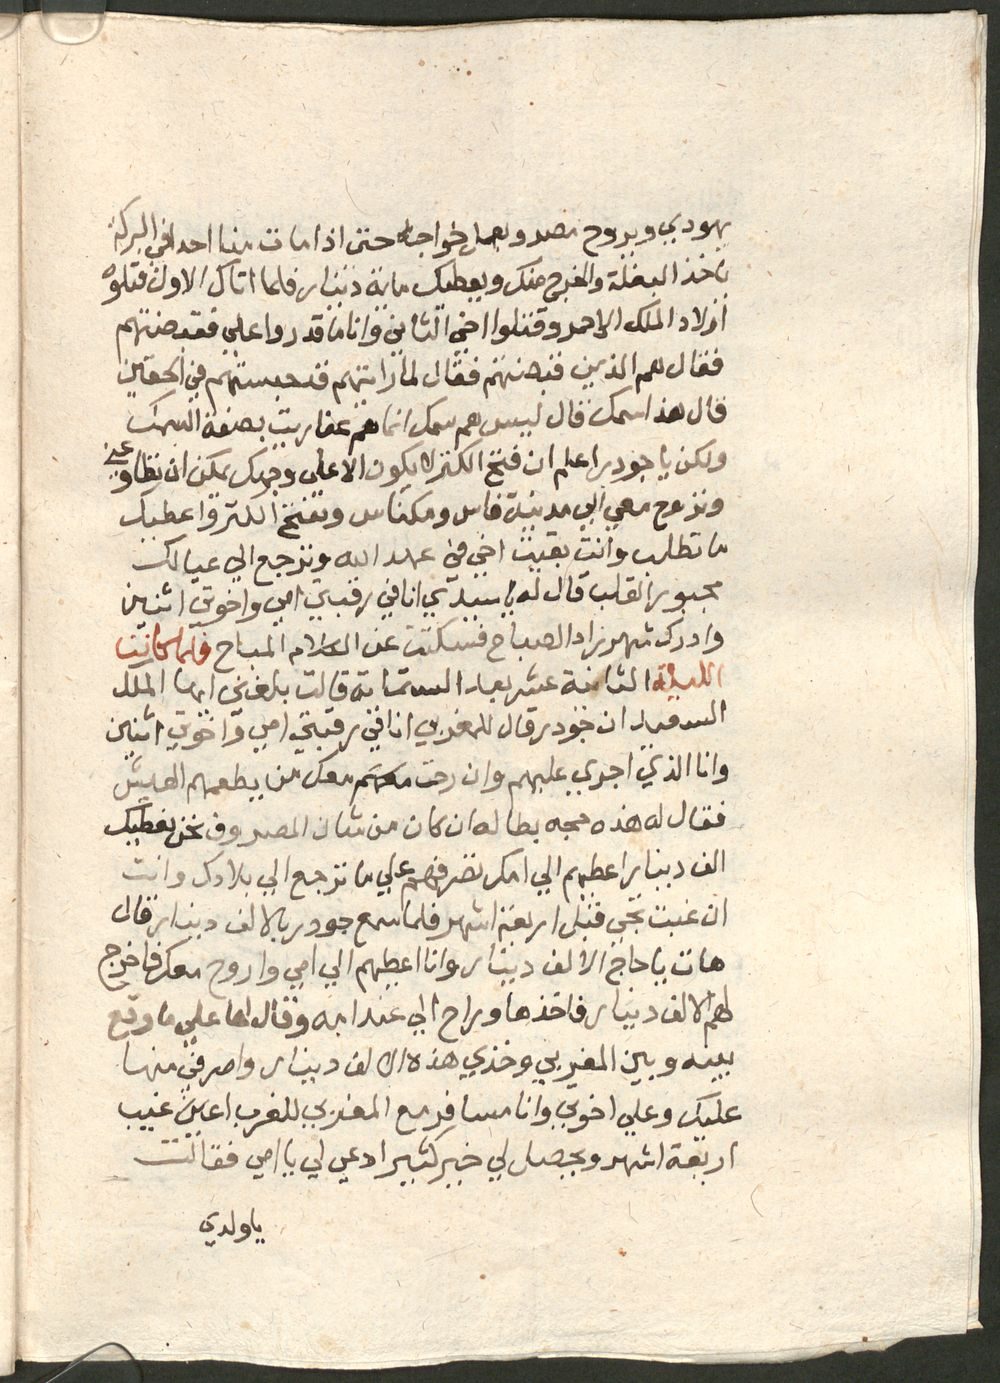 يهودي ويروح مصر ويعمل خواجا حتى اذا مات منا احد في البركة
ياخذ البغلة والخرج منك ويعطيك ماية دينار فلما اتاك الاول قتلوه
اولاد الملك الاحمر وقتلوا اخي الثاني وانا ما قدروا علي فقبضتهم
فقال هم الذين قبضتهم فقال له اما رايتهم قد حبستهم في الحقين
قال هذا سمك قال ليس هم سمك انما هم عفاريت بصفة السمك
ولكن يا جودر اعلم ان فتح الكنز لا يكون الا على وجهك يمكن ان تطاوعني
وتروح معي الى مدينة فاس ومكناس ونفتح الكنز واعطيك
ما تطلب وانت بقيت اخي في عهد الله وترجع الي عيالك
مجبور القلب قال له يا سيدي انا في رقبتي امي واخوتي اثنين
وادرك شهرزاد الصباح فسكتت عن الكلام المباح فلما كانت
الليلة الثامنة عشر بعد الستماية قالت بلغني ايها الملك
السعيد ان جودر قال للمغربي انا في رقبتي امي واخوتي اثنين
وانا الذي اجري عليهم وان رحت معك من يطعمهم العيش
فقال له هذه حجه بطاله ان كان من شان المصروف نحن نعطيك
الف دينار اعطيهم الي امك تصرفهم علي ما ترجع الي بلادك وانت
ان غبت تجي قبل اربعة اشهر فلما سمع جودر بالالف دينار قال
هات يا حاج الالف دينار وانا اعطيهم الي امي واروح معك فاخرج
لهم الالف دينار فاخذها وراح الي عند امه وقال لها علي ما وقع
بينه وبين المغربي وخذي هذه الالف دينار واصرفي منها
عليك وعلي اخوتي وانا مسافر مع المغربي للغرب اغيب
اربعة اشهر ويحصل لي خير كثير ادعي لي يا امي فقالت
يا ولدي